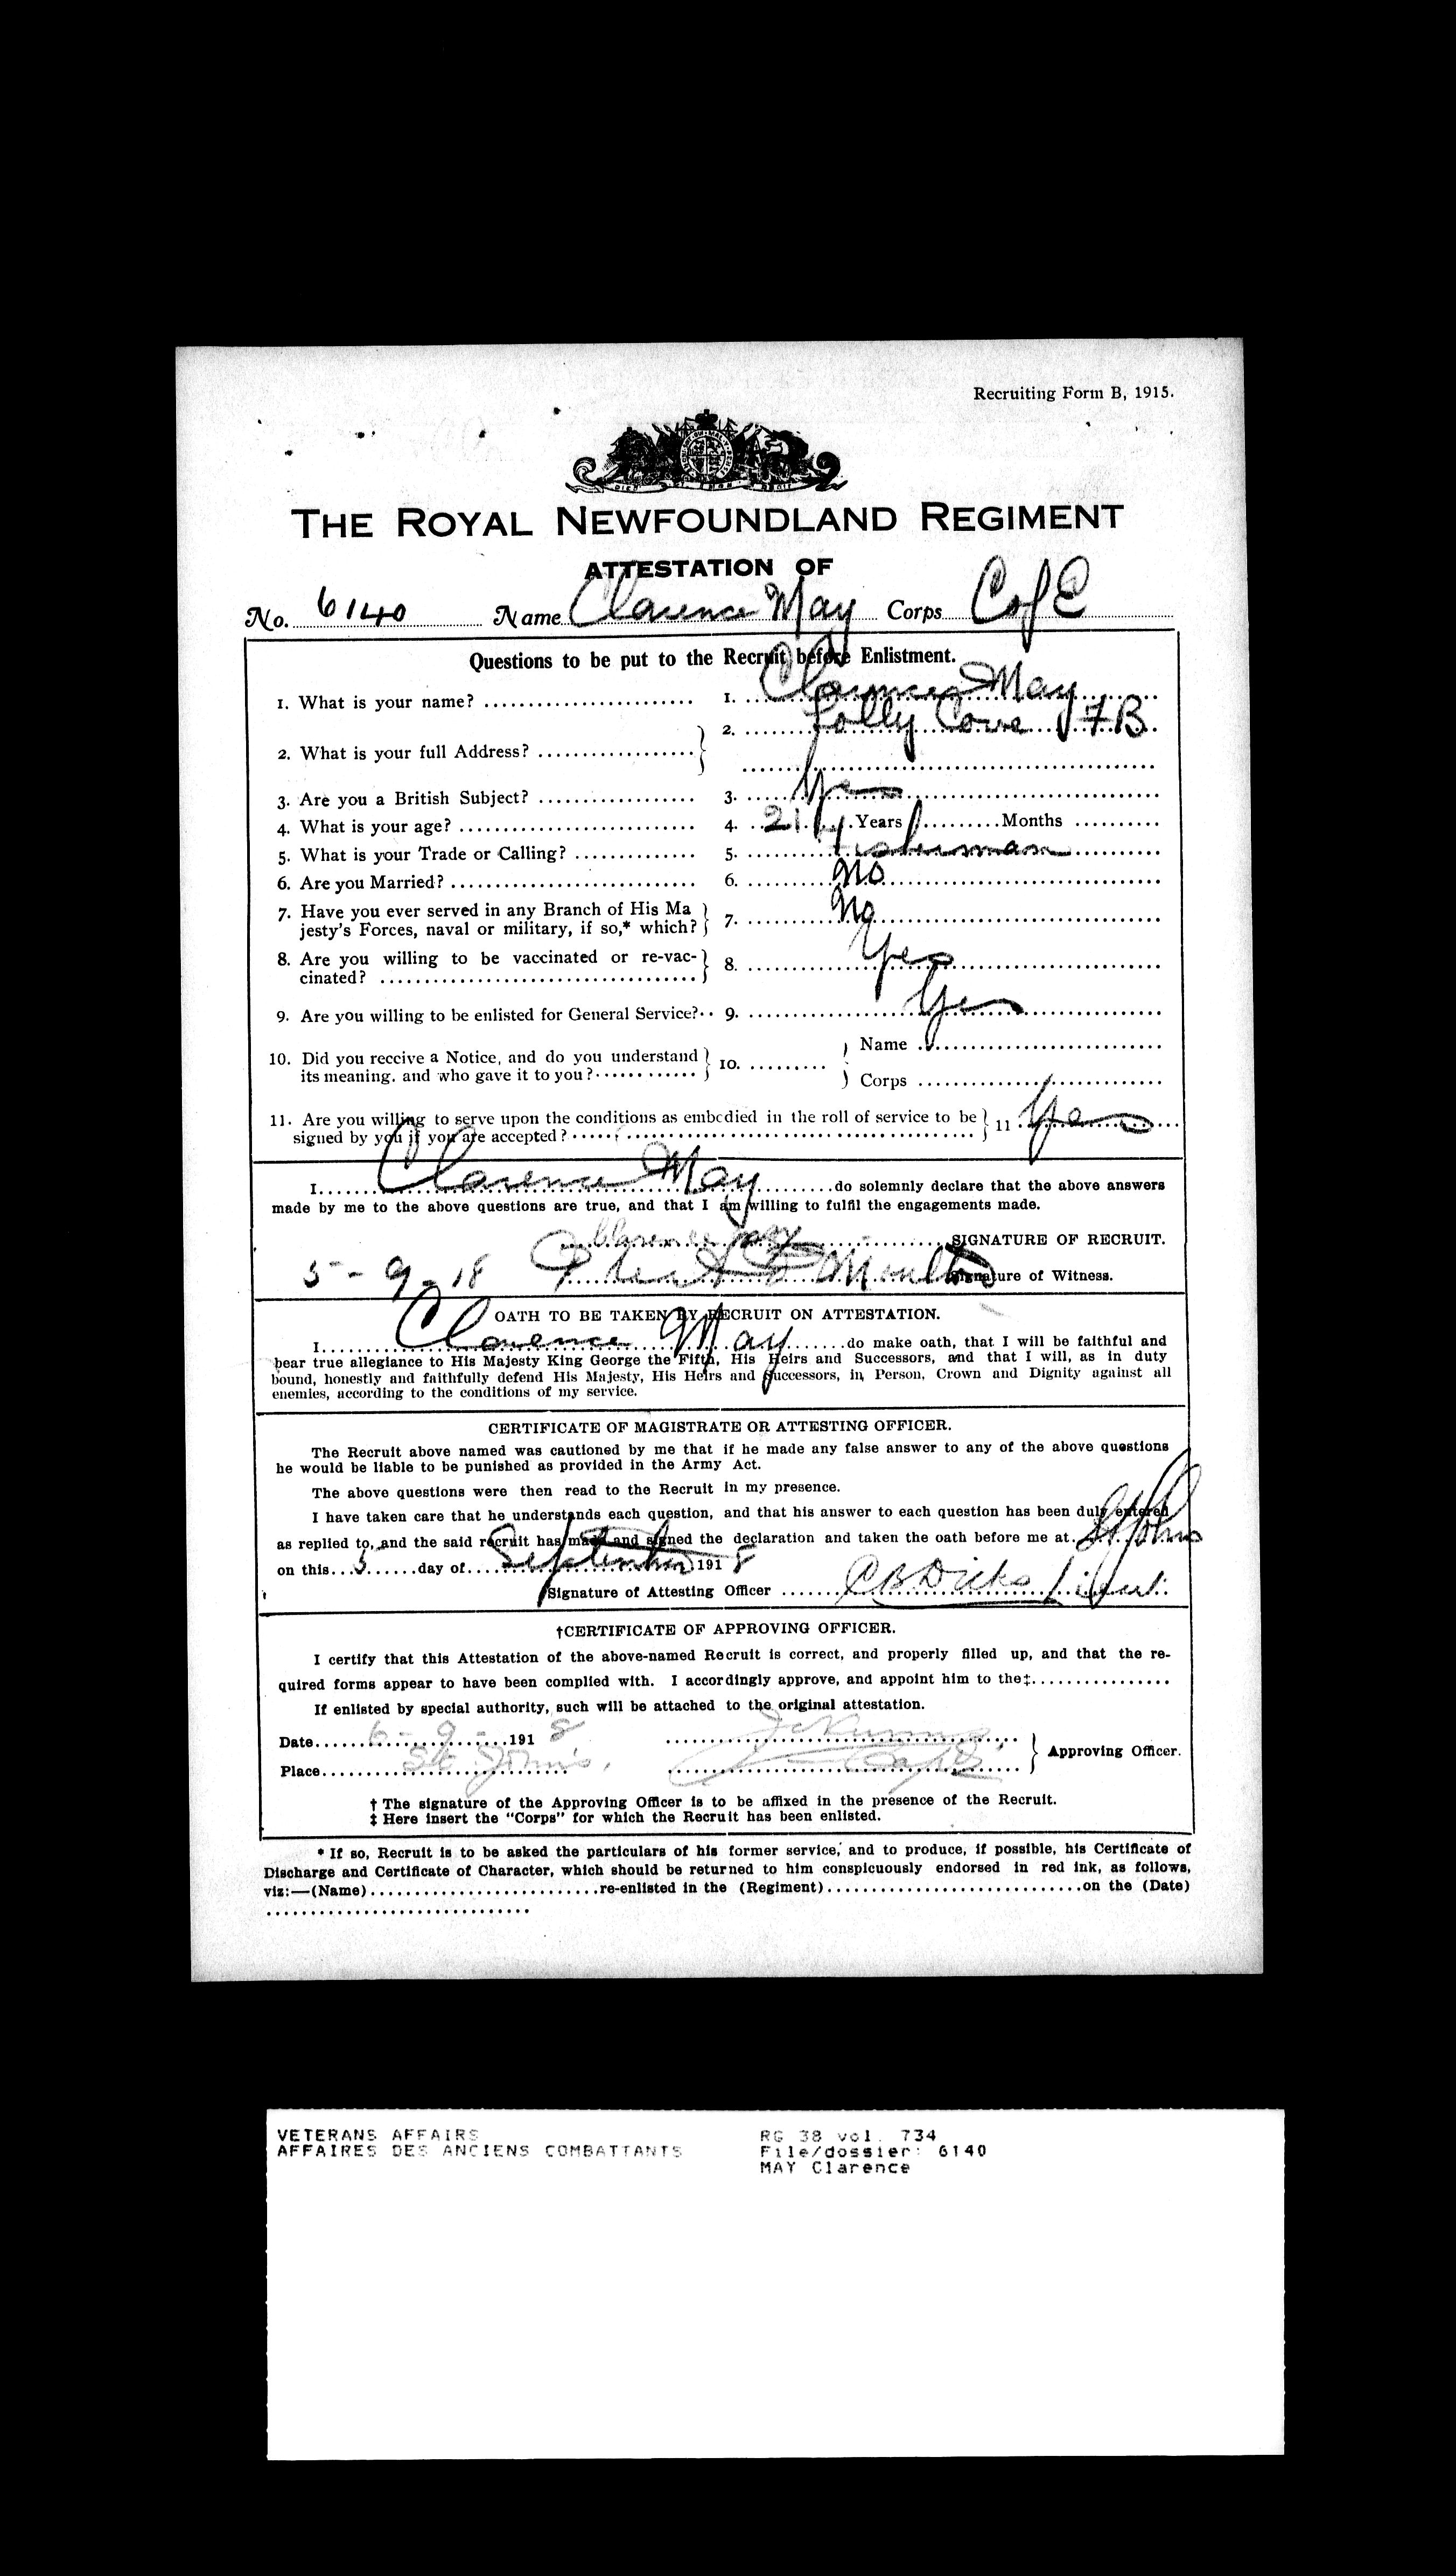 Recruiting Form B, 1915.
THE ROYAL NEWFOUNDLAND REGIMENT
ATTESTATION OF
No. 6140 Name Clarence May Corps C of E
Questions to be put to the Recruit before Enlistment.
1. What is your name? 1. Clarence May
2. What is your full Address? 2. Jolly Cove F B
3. Are you a British Subject? 3. Yes
4. What is your age? 4. 21 Years Months
5. What is your Trade or Calling? 5. Fisherman
6. Are you Married? 6. No
7. Have you ever served in any Branch of His Ma
jesty's Forces, naval or military, if so,* which? 7. No
8. Are you willing to be vaccinated or re-vac-
cinated? 8. Yes
9. Are you willing to be enlisted for General Service? 9. Yes
10. Did you receive a Notice, and do you understand
its meaning. and who gave it to you? 10. Name
Corps
11. Are you willing to serve upon the conditions as embodied in the roll of service to be
signed by you if you are accepted? 11 Yes
I Clarence May do solemnly declare that the above answers
made by me to the above questions are true, and that I am willing to fulfil the engagements made.
Clarence May SIGNATURE OF RECRUIT.
5-9-18 Moulton Signature of Witness.
OATH TO BE TAKEN BY RECRUIT ON ATTESTATION.
I Clarence May do make oath, that I will be faithful and
bear true allegiance to His Majesty King George the Fifth, His Heirs and Successors, and that I will, as in duty
bound, honestly and faithfully defend His Majesty, His Heirs and Successors, in Person, Crown and Dignity against all
enemies, according to the conditions of my service.
CERTIFICATE OF MAGISTRATE OR ATTESTING OFFICER.
The Recruit above named was cautioned by me that if he made any false answer to any of the above questions
he would be liable to be punished as provided in the Army Act.
The above questions were then read to the Recruit in my presence.
I have taken care that he understands each question, and that his answer to each question has been duly entered
as replied to, and the said recruit has made and signed the declaration and taken the oath before me at St Johns
on this 5 day of September 1918
Signature of Attesting Officer C B Dicks Lieut.
†CERTIFICATE OF APPROVING OFFICER.
I certify that this Attestation of the above-named Recruit is correct, and properly filled up, and that the re-
quired forms appear to have been complied with. I accordingly approve, and appoint him to the‡
If enlisted by special authority, such will be attached to the original attestation.
Date 6-9- 1918
Place St John's. Capt Approving Officer.
† The signature of the Approving Officer is to be affixed in the presence of the Recruit.
‡ Here insert the "Corps" for which the Recruit has been enlisted.
* If so, Recruit is to be asked the particulars of his former service, and to produce, if possible, his Certificate of
Discharge and Certificate of Character, which should be returned to him conspicuously endorsed in red ink, as follows,
viz:—(Name) re-enlisted in the (Regiment) on the (Date)
VETERANS AFFAIRS RG 38 vol. 734
AFFAIRES DES ANCIENS COMBATTANTS File/dossier: 6140
MAY Clarence